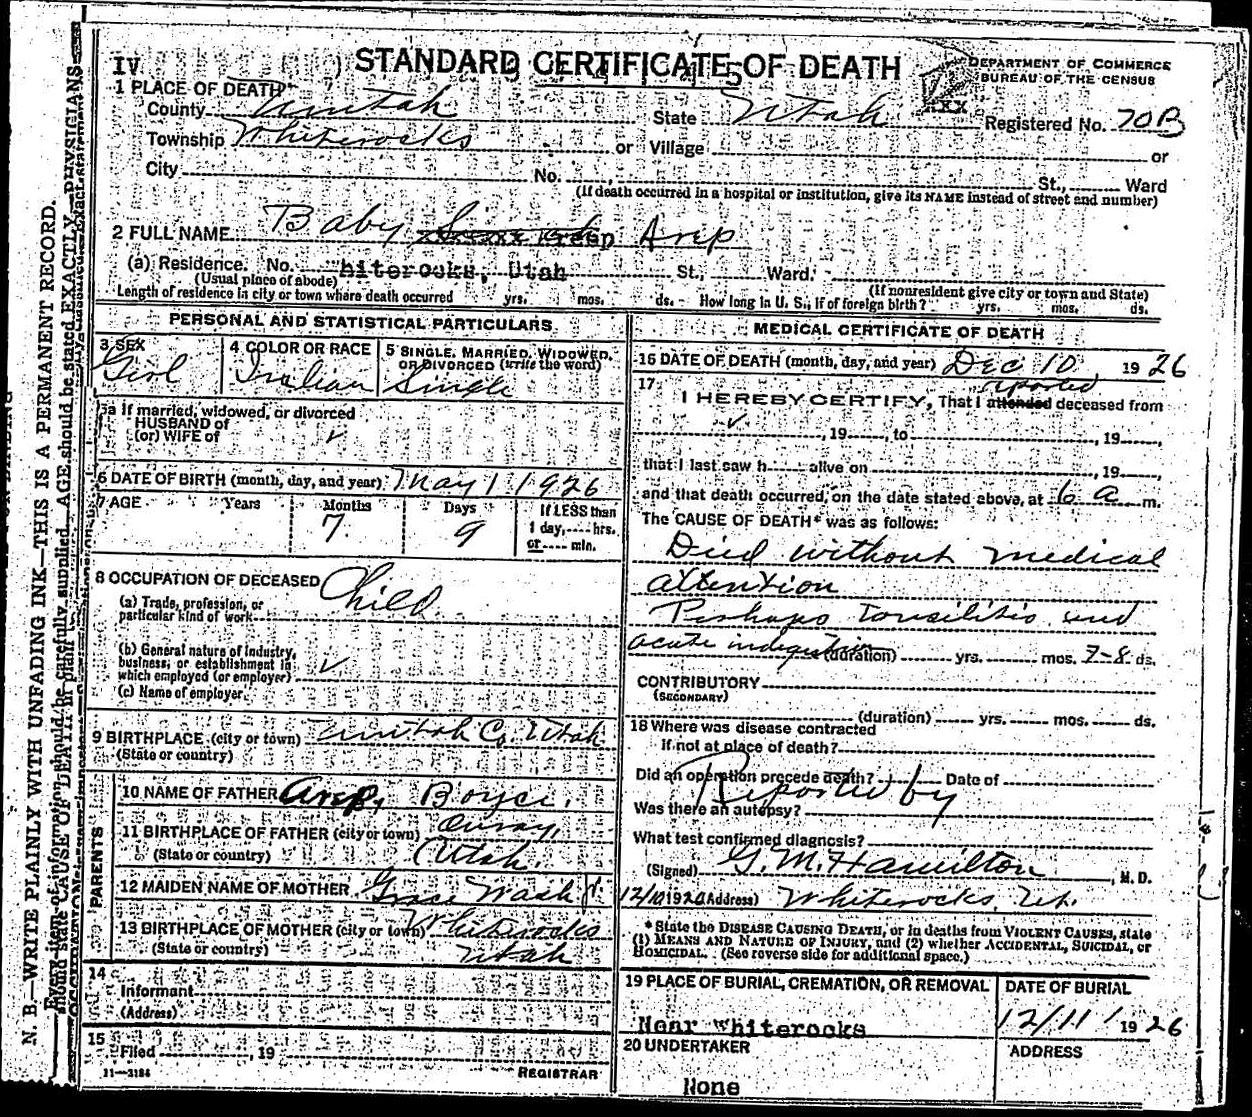 IV STANDARD CERTIFICATE OF DEATH
DEPARTMENT OF COMMERCE
BUREAU OF THE CENSUS
1 PLACE OF DEATH
County Uintah State Utah Registered No. 70B
Township Whiterocks or Village or
City No. St., Ward
(If death occurred in a hospital or institution, give its NAME instead of street and number)
2 FULL NAME Baby Arep
(a) Residence. No. hiterocks, Utah St., Ward.
(Usual place of abode) (If nonresident give city or town and State)
Length of residence in city or town where death occurred yrs. mos. ds. How long in U. S., if of foreign birth? yrs. mos. ds.
PERSONAL AND STATISTICAL PARTICULARS
3 SEX 4 COLOR OR RACE 5 SINGLE, MARRIED, WIDOWED, OR DIVORCED (write the word)
Girl Indian Single
5a If married, widowed, or divorced
HUSBAND of
(or) WIFE of ✓
6 DATE OF BIRTH (month, day, and year) May 1 1926
7 AGE Years Months Days If LESS than
7 9 1 day, hrs.
or min.
8 OCCUPATION OF DECEASED Child
(a) Trade, profession, or
particular kind of work
(b) General nature of industry,
business, or establishment in
which employed (or employer) ✓
(c) Name of employer
9 BIRTHPLACE (city or town) Uintah Co. Utah
(State or country)
PARENTS
10 NAME OF FATHER Arep, Boyce.
11 BIRTHPLACE OF FATHER (city or town) Ouray,
(State or country) Utah.
12 MAIDEN NAME OF MOTHER Grace Wash
13 BIRTHPLACE OF MOTHER (city or town) Whiterocks
(State or country) Utah
14
Informant
(Address)
15
Filed , 19
REGISTRAR
11—3184
MEDICAL CERTIFICATE OF DEATH
16 DATE OF DEATH (month, day, and year) Dec 10 1926
17 reported
I HEREBY CERTIFY, That I attended deceased from
✓ , 19 , to , 19 ,
that I last saw h alive on , 19 ,
and that death occurred, on the date stated above, at 6 a m.
The CAUSE OF DEATH* was as follows:
Died without medical
attention
Perhaps tonsilitis and
acute indigestion (duration) yrs. mos. 7-8 ds.
CONTRIBUTORY
(SECONDARY)
(duration) yrs. mos. ds.
18 Where was disease contracted
If not at place of death?
Did an operation precede death? Date of
Reported by
Was there an autopsy?
What test confirmed diagnosis?
(Signed) G. M. Hamilton , M. D.
12/10 1926 (Address) Whiterocks, Ut.
* State the DISEASE CAUSING DEATH, or in deaths from VIOLENT CAUSES, state
(1) MEANS AND NATURE OF INJURY, and (2) whether ACCIDENTAL, SUICIDAL, or
HOMICIDAL. (See reverse side for additional space.)
19 PLACE OF BURIAL, CREMATION, OR REMOVAL DATE OF BURIAL
Near Whiterocks 12/11 1926
20 UNDERTAKER ADDRESS
None
N. B.—WRITE PLAINLY WITH UNFADING INK—THIS IS A PERMANENT RECORD.